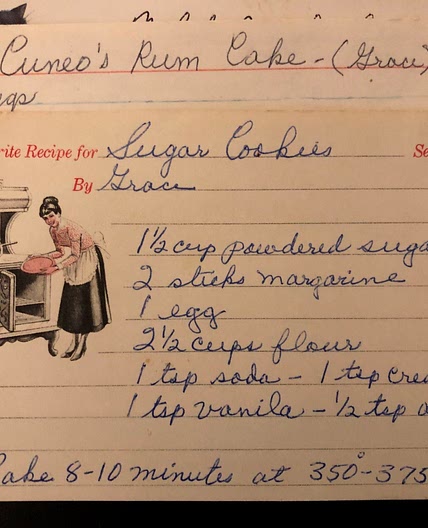 Cuneo's Rum Cake - (Grace)
rite Recipe for Sugar Cookies Se
By Grace
1½ cup powdered suga
2 sticks margarine
1 egg
2½ cups flour
1 tsp soda - 1 tsp crea
1 tsp vanila - ½ tsp a
Bake 8-10 minutes at 350°-375